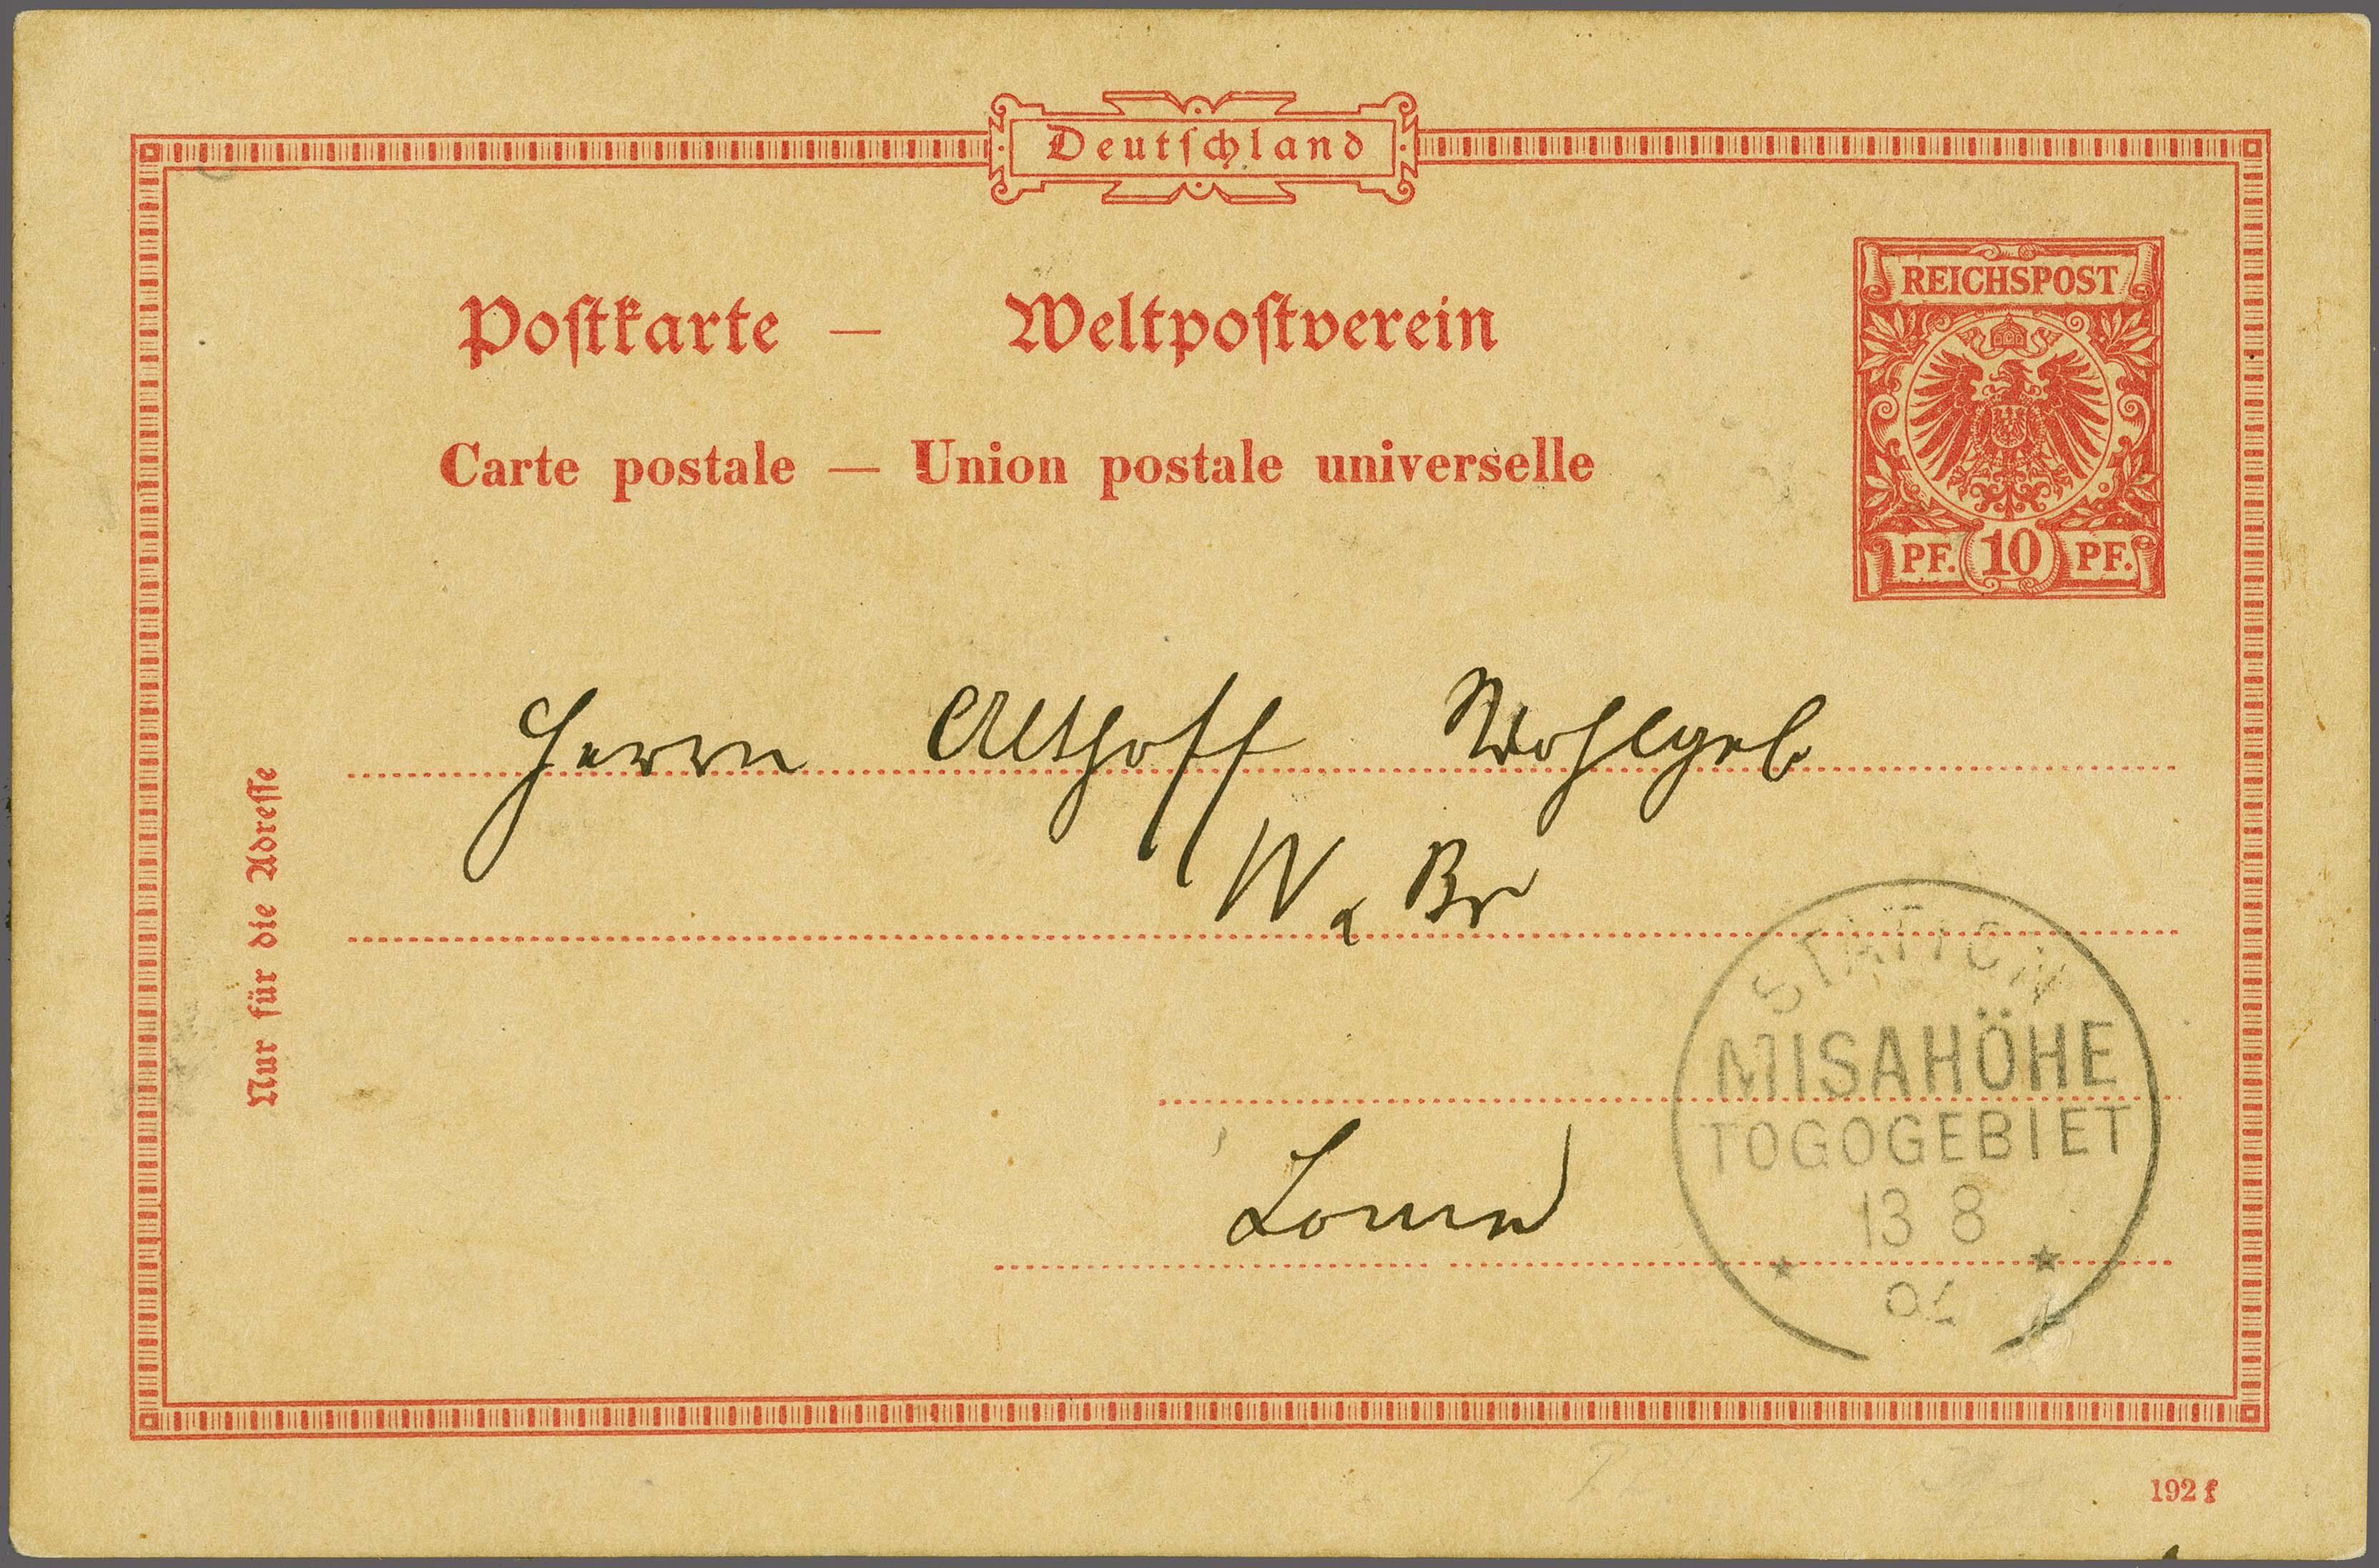 Deutschland
Postkarte — Weltpostverein
Carte postale — Union postale universelle
REICHSPOST
PF. 10 PF.
Herrn Althoff Wohlgeb
W. Br
Nur für die Adresse
STATION
MISAHÖHE
TOGOGEBIET
13 8
Lome
192 f